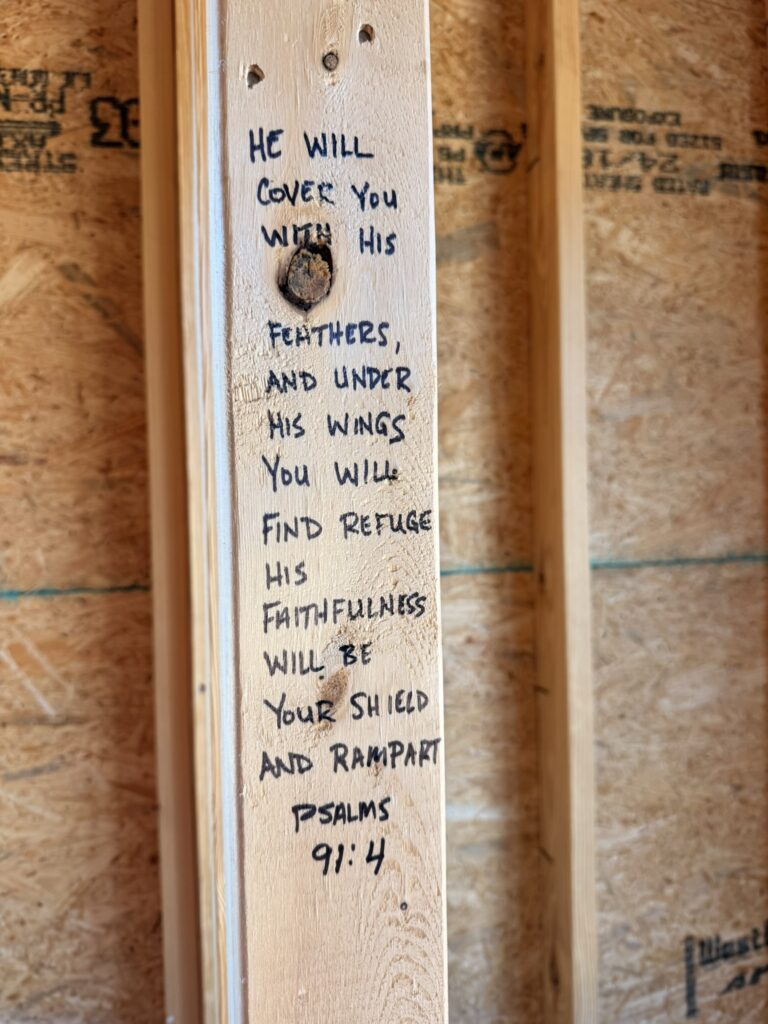 HE WILL
COVER YOU
WITH HIS
FEATHERS,
AND UNDER
HIS WINGS
YOU WILL
FIND REFUGE
HIS
FAITHFULNESS
WILL BE
YOUR SHIELD
AND RAMPART
PSALMS
91:4
EXPOSURE
SIZED FOR
24/16